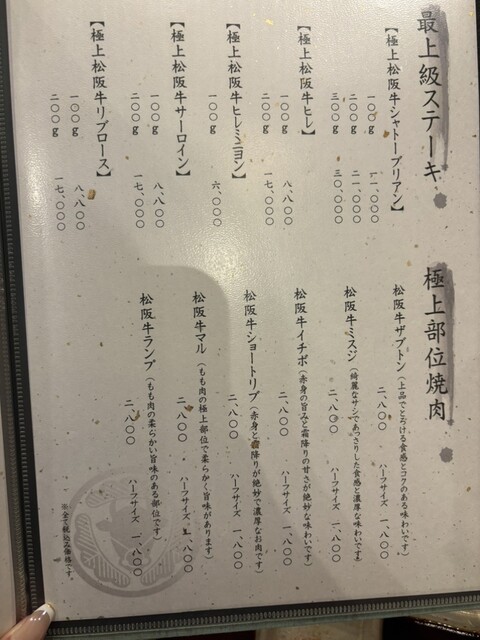 最上級ステーキ
【極上松阪牛シャトーブリアン】
一〇〇g 一一、〇〇〇
二〇〇g 二一、〇〇〇
三〇〇g 三〇、〇〇〇
【極上松阪牛ヒレ】
一〇〇g 八、八〇〇
二〇〇g 一七、〇〇〇
【極上松阪牛ヒレミニヨン】
一〇〇g 六、〇〇〇
【極上松阪牛サーロイン】
一〇〇g 八、八〇〇
二〇〇g 一七、〇〇〇
【極上松阪牛リブロース】
一〇〇g 八、八〇〇
二〇〇g 一七、〇〇〇
極上部位焼肉
松阪牛ザブトン（上品でとろける食感とコクのある味わいです）
二、八〇〇 ハーフサイズ 一、八〇〇
松阪牛ミスジ（綺麗なサシであっさりした食感と濃厚な味わいです）
二、八〇〇 ハーフサイズ 一、八〇〇
松阪牛イチボ（赤身の旨みと霜降りの甘さが絶妙な味わいです）
二、八〇〇 ハーフサイズ 一、八〇〇
松阪牛ショートリブ（赤身と霜降りが絶妙で濃厚なお肉です）
二、八〇〇 ハーフサイズ 一、八〇〇
松阪牛マル（もも肉の極上部位で柔らかく旨味があります）
二、八〇〇 ハーフサイズ 一、八〇〇
松阪牛ランプ（もも肉の柔らかい旨味のある部位です）
二、八〇〇 ハーフサイズ 一、八〇〇
※全て税込み価格です。